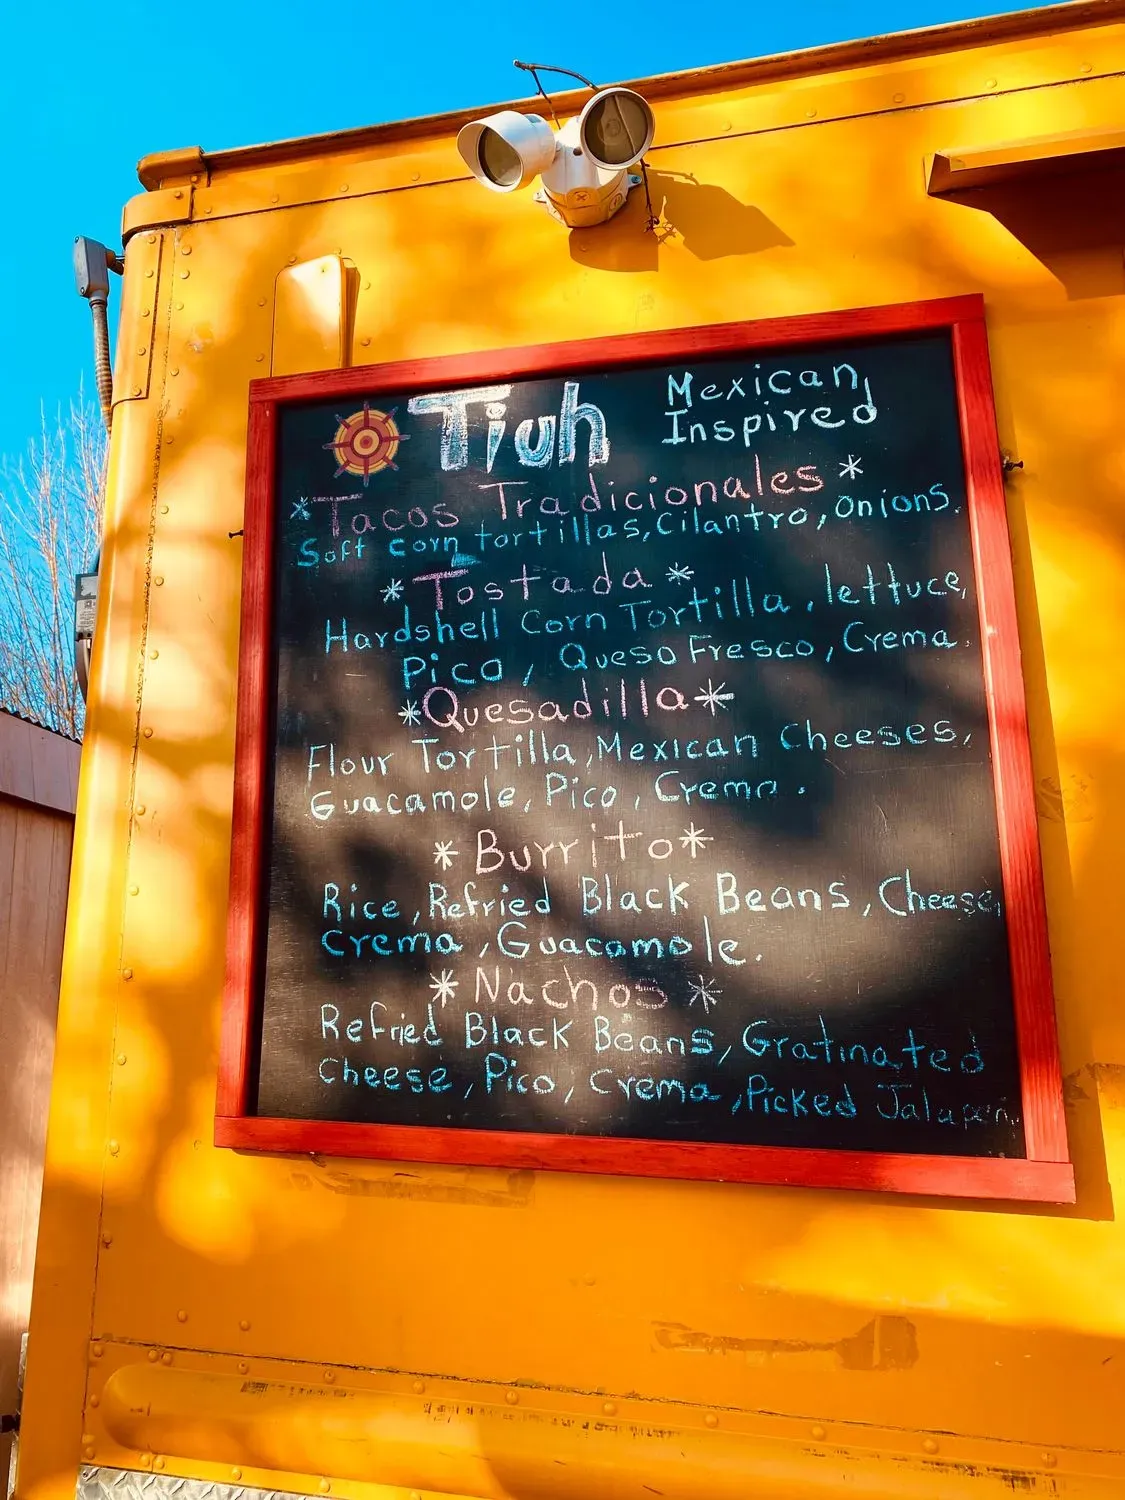 Tiuh
Mexican,
Inspired
*Tacos Tradicionales*
Soft corn tortillas, Cilantro, Onions.
*Tostada*
Hardshell Corn Tortilla, lettuce,
Pico, Queso Fresco, Crema.
*Quesadilla*
Flour Tortilla, Mexican Cheeses,
Guacamole, Pico, Crema.
*Burrito*
Rice, Refried Black Beans, Cheese,
Crema, Guacamole.
*Nachos*
Refried Black Beans, Gratinated
Cheese, Pico, Crema, Picked